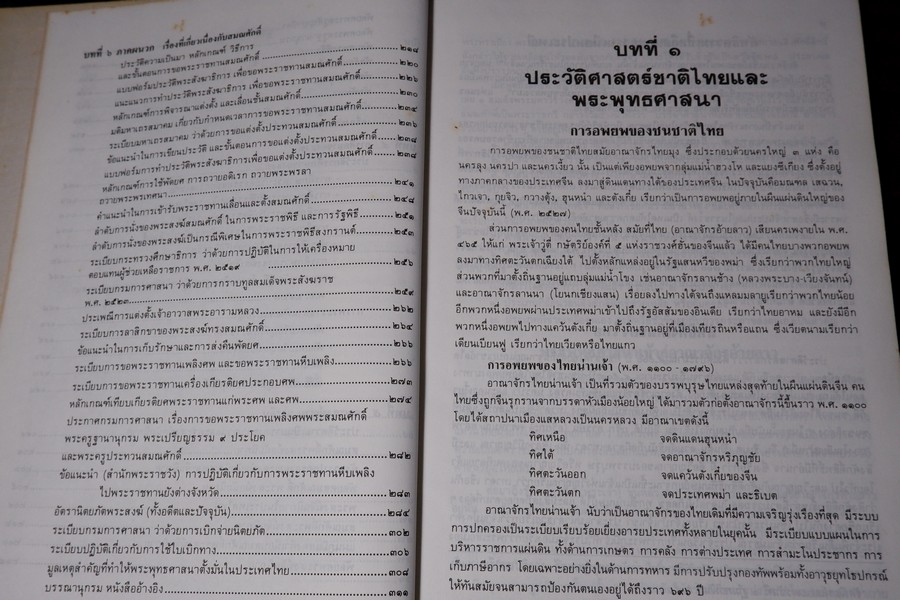 บทที่ ๖ ภาคผนวก เรื่องที่เกี่ยวเนื่องกับสมณศักดิ์
ประวัติความเป็นมา หลักเกณฑ์ วิธีการ
และขั้นตอนการขอพระราชทานสมณศักดิ์ ๒๑๘
แบบฟอร์มประวัติพระสังฆาธิการ เพื่อขอพระราชทานสมณศักดิ์ ๒๒๐
แนะแนวการทำประวัติพระสังฆาธิการ เพื่อขอพระราชทานสมณศักดิ์ ๒๒๖
หลักเกณฑ์การพิจารณาแต่งตั้ง และเลื่อนชั้นสมณศักดิ์
มติมหาเถรสมาคม เกี่ยวกับกำหนดเวลาการขอพระราชทานสมณศักดิ์ ๒๓๔
ระเบียบมหาเถรสมาคม ว่าด้วยการขอแต่งตั้งประทวนสมณศักดิ์ ๒๓๖
ข้อแนะนำในการเขียนประวัติ และขั้นตอนการขอแต่งตั้งประทวนสมณศักดิ์
แบบฟอร์มการทำประวัติพระสังฆาธิการเพื่อขอแต่งตั้งประทวนสมณศักดิ์ ๒๓๘
หลักเกณฑ์การใช้พัดยศ การถวายอดิเรก ถวายพระพรลา
ถวายพระพรเทศนา ๒๔๑
คำแนะนำในการเข้ารับพระราชทานเลื่อนและตั้งสมณศักดิ์ ๒๔๘
ลำดับการนั่งของพระสงฆ์สมณศักดิ์ ในการพระราชพิธี และการรัฐพิธี ๒๕๑
ลำดับการนั่งของพระสงฆ์เป็นกรณีพิเศษในการพระราชพิธีสงกรานต์ ๒๕๓
ระเบียบกระทรวงศึกษาธิการ ว่าด้วยการปฏิบัติในการให้เครื่องหมาย
ตอบแทนผู้ช่วยเหลือราชการ พ.ศ. ๒๕๑๙ ๒๕๖
ระเบียบกรมการศาสนา ว่าด้วยการกราบทูลสมเด็จพระสังฆราช
พ.ศ. ๒๕๒๓ ๒๕๙
ประเพณีการแต่งตั้งเจ้าอาวาสพระอารามหลวง ๒๖๒
ระเบียบการลาสิกขาของพระสงฆ์ทรงสมณศักดิ์ ๒๖๔
ข้อแนะนำในการเก็บรักษาและการส่งคืนพัดยศ ๒๖๖
ระเบียบการขอพระราชทานเพลิงศพ และขอพระราชทานหีบเพลิง ๒๖๖
ระเบียบการขอพระราชทานเครื่องเกียรติยศประกอบศพ ๒๗๓
หลักเกณฑ์เทียบเกียรติยศพระราชทานแก่พระศพ และศพ ๒๗๔
ประกาศกรมการศาสนา เรื่องการขอพระราชทานเพลิงศพพระสมณศักดิ์
พระครูฐานานุกรม พระเปรียญธรรม ๙ ประโยค
และพระครูประทวนสมณศักดิ์ ๒๘๒
ข้อแนะนำ (สำนักพระราชวัง) การปฏิบัติเกี่ยวกับการพระราชทานหีบเพลิง
ไปพระราชทานยังต่างจังหวัด ๒๘๓
อัตรานิตยภัตพระสงฆ์ (ทั้งอดีตและปัจจุบัน) ๒๘๔
ระเบียบกรมการศาสนา ว่าด้วยการเบิกจ่ายนิตยภัต ๓๐๒
ระเบียบปฏิบัติเกี่ยวกับการใช้ใบเบิกทาง ๓๐๖
มูลเหตุสำคัญที่ทำให้พระพุทธศาสนาตั้งมั่นในประเทศไทย ๓๐๘
บรรณานุกรม หนังสืออ้างอิง ๓๑๑
บทที่ ๑
ประวัติศาสตร์ชาติไทยและ
พระพุทธศาสนา
การอพยพของชนชาติไทย
การอพยพของชนชาติไทยสมัยอาณาจักรไทยมุง ซึ่งประกอบด้วยนครใหญ่ ๓ แห่ง คือ
นครลุง นครปา และนครเงี้ยว นั้น เป็นแต่เพียงอพยพจากลุ่มแม่น้ำฮวงโห และแยงซีเกียง ซึ่งตั้งอยู่
ทางภาคกลางของประเทศจีน ลงมาสู่ดินแดนทางใต้ของประเทศจีน, ในปัจจุบันคือมณฑล เสฉวน,
ไกวเจา, กุยจิว, กวางตุ้ง, ฮุนหนำ และตังเกี๋ย เรียกว่าเป็นการอพยพอยู่ภายในผืนแผ่นดินใหญ่ของ
จีนปัจจุบันนี้ (พ.ศ. ๒๕๒๗)
ส่วนการอพยพของคนไทยชั้นหลัง สมัยที่ไทย (อาณาจักรอ้ายลาว) เสียนครเพงายใน พ.ศ.
๔๖๕ ให้แก่ พระเจ้าวู่ตี่ กษัตริย์องค์ที่ ๕ แห่งราชวงศ์ฮั่นของจีนแล้ว ได้มีคนไทยบางพวกอพยพ
ลงมาทางทิศตะวันตกเฉียงใต้ ไปตั้งหลักแหล่งอยู่ในรัฐแสนหวีของพม่า ซึ่งเรียกว่าพวกไทยใหญ่
ส่วนพวกที่มาตั้งถิ่นฐานอยู่แถบลุ่มแม่น้ำโขง เช่นอาณาจักรลานช้าง (หลวงพระบาง-เวียงจันทน์)
และอาณาจักรลานนา (โยนกเชียงแสน) เรื่อยลงไปทางใต้จนถึงแหลมมลายูเรียกว่าพวกไทยน้อย
อีกพวกหนึ่งอพยพผ่านประเทศพม่าเข้าไปถึงรัฐอัสสัมของอินเดีย เรียกว่าไทยอาหม และยังมีอีก
พวกหนึ่งอพยพไปทางแคว้นตังเกี๋ย มาตั้งถิ่นฐานอยู่ที่เมืองเกียรถินหรือแถน ซึ่งเวียดนามเรียกว่า
เดียนเบียนฟู เรียกว่าไทยเวียตหรือไทยแกว
การอพยพของไทยน่านเจ้า (พ.ศ. ๑๑๐๐ - ๑๗๙๖)
อาณาจักรไทยน่านเจ้า เป็นที่รวมตัวของบรรพบุรุษไทยแหล่งสุดท้ายในผืนแผ่นดินจีน คน
ไทยซึ่งถูกจีนรุกรานจากบรรดาหัวเมืองน้อยใหญ่ ได้มารวมตัวก่อตั้งอาณาจักรนี้ขึ้นราว พ.ศ. ๑๑๐๐
โดยได้สถาปนาเมืองแสหลวงเป็นนครหลวง มีอาณาเขตดังนี้
ทิศเหนือ จดดินแดนฮุนหนำ
ทิศใต้ จดอาณาจักรหริภุญชัย
ทิศตะวันออก จดแคว้นตังเกี๋ยของจีน
ทิศตะวันตก จดประเทศพม่า และธิเบต
อาณาจักรไทยน่านเจ้า นับว่าเป็นอาณาจักรของไทยเดิมที่มีความเจริญรุ่งเรืองที่สุด มีระบบ
การปกครองเป็นระเบียบเรียบร้อยเยี่ยงอารยประเทศทั้งหลายในยุคนั้น มีระเบียบแบบแผนในการ
บริหารราชการแผ่นดิน ทั้งด้านการเกษตร การคลัง การต่างประเทศ การสำมะโนประชากร การ
เก็บภาษีอากร โดยเฉพาะอย่างยิ่งในด้านการทหาร มีการปรับปรุงกองทัพพร้อมทั้งอาวุธยุทโธปกรณ์
ให้ทันสมัยจนสามารถป้องกันตนเองอยู่ได้ถึงราว ๖๙๖ ปี